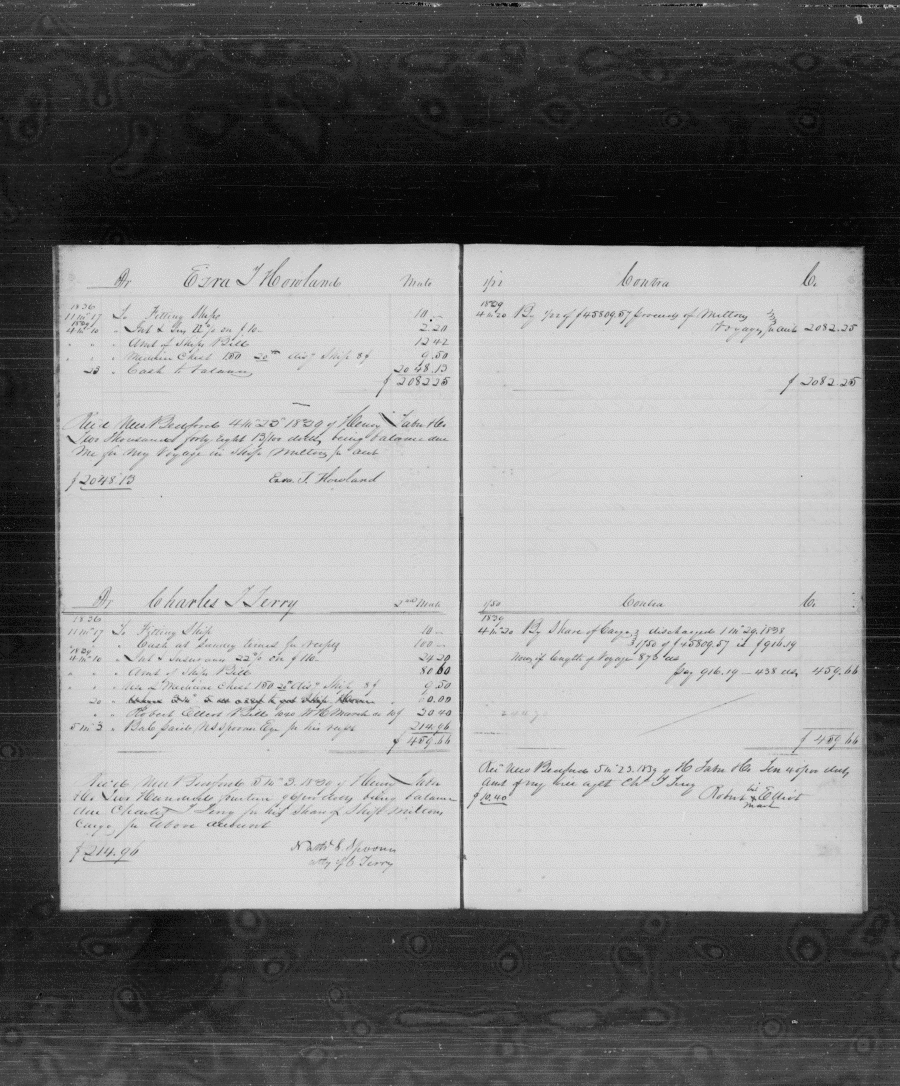 Dr Ezra T Howland Mate
1836
11 mo 17 To Fitting Ship 10.-
1839
4 mo 20 " Int & Ins 22% on $10- 2.20
" " " Amt of Ships Bill 12 42
" " " Medicine Chest 150 Ship 8f 9.50
23 " Cash to balance 2048.13
$ 2082 25
Rec'd New Bedford 4 mo 23 1839 of Henry Taber & Co
Two Thousand forty eight 13/100 dolls, being balance due
me for my Voyage in Ship Milton pr act
$2048.13 Ezra T. Howland
Dr Charles T Terry 2nd Mate
1836
11 mo 17 To Fitting Ship 10 -
" Cash at Sundry times pr receipts 100 -
1839
4 mo 20 " Int & Insurance 22% on $110- 24 20
" " " Amt of Ships Bill 80 60
" " " Medicine Chest 150 Ship 8f 9.50
20 "
" Robert Elliots Bill 20.40
5 mo 3 " Bal paid N S Spooner pr his recpt 214.96
$ 459.66
Rec'd New Bedford 5 mo 3. 1839 of Henry Taber
& Co Two Hundred fourteen 96/100 dollars being balance
due Charles T Terry for his Share of Ship Miltons
Cargo, pr above account
$214.96 Nath S. Spooner
atty of C Terry
1/22 Contra Cr
1839
4 mo 20 By 1/22 of $45809.57 proceeds of Miltons
Voyage, pr act 2082.25
$ 2082.25
1/50 Contra Cr
1839
4 mo 20 By Share of Cargo, discharged 1 mo 29, 1838
1/50 of $45809.57 is $916.19
length of Voyage 876 ds
Pay 916.19 - 438 ds, 459.66
$ 459.66
Rec'd New Bedford 5 mo 23. 1839 of H Taber & Co Ten 40/100 dolls,
amt of my bill agst Ch T Terry
$10.40 Robert his x mark Elliot